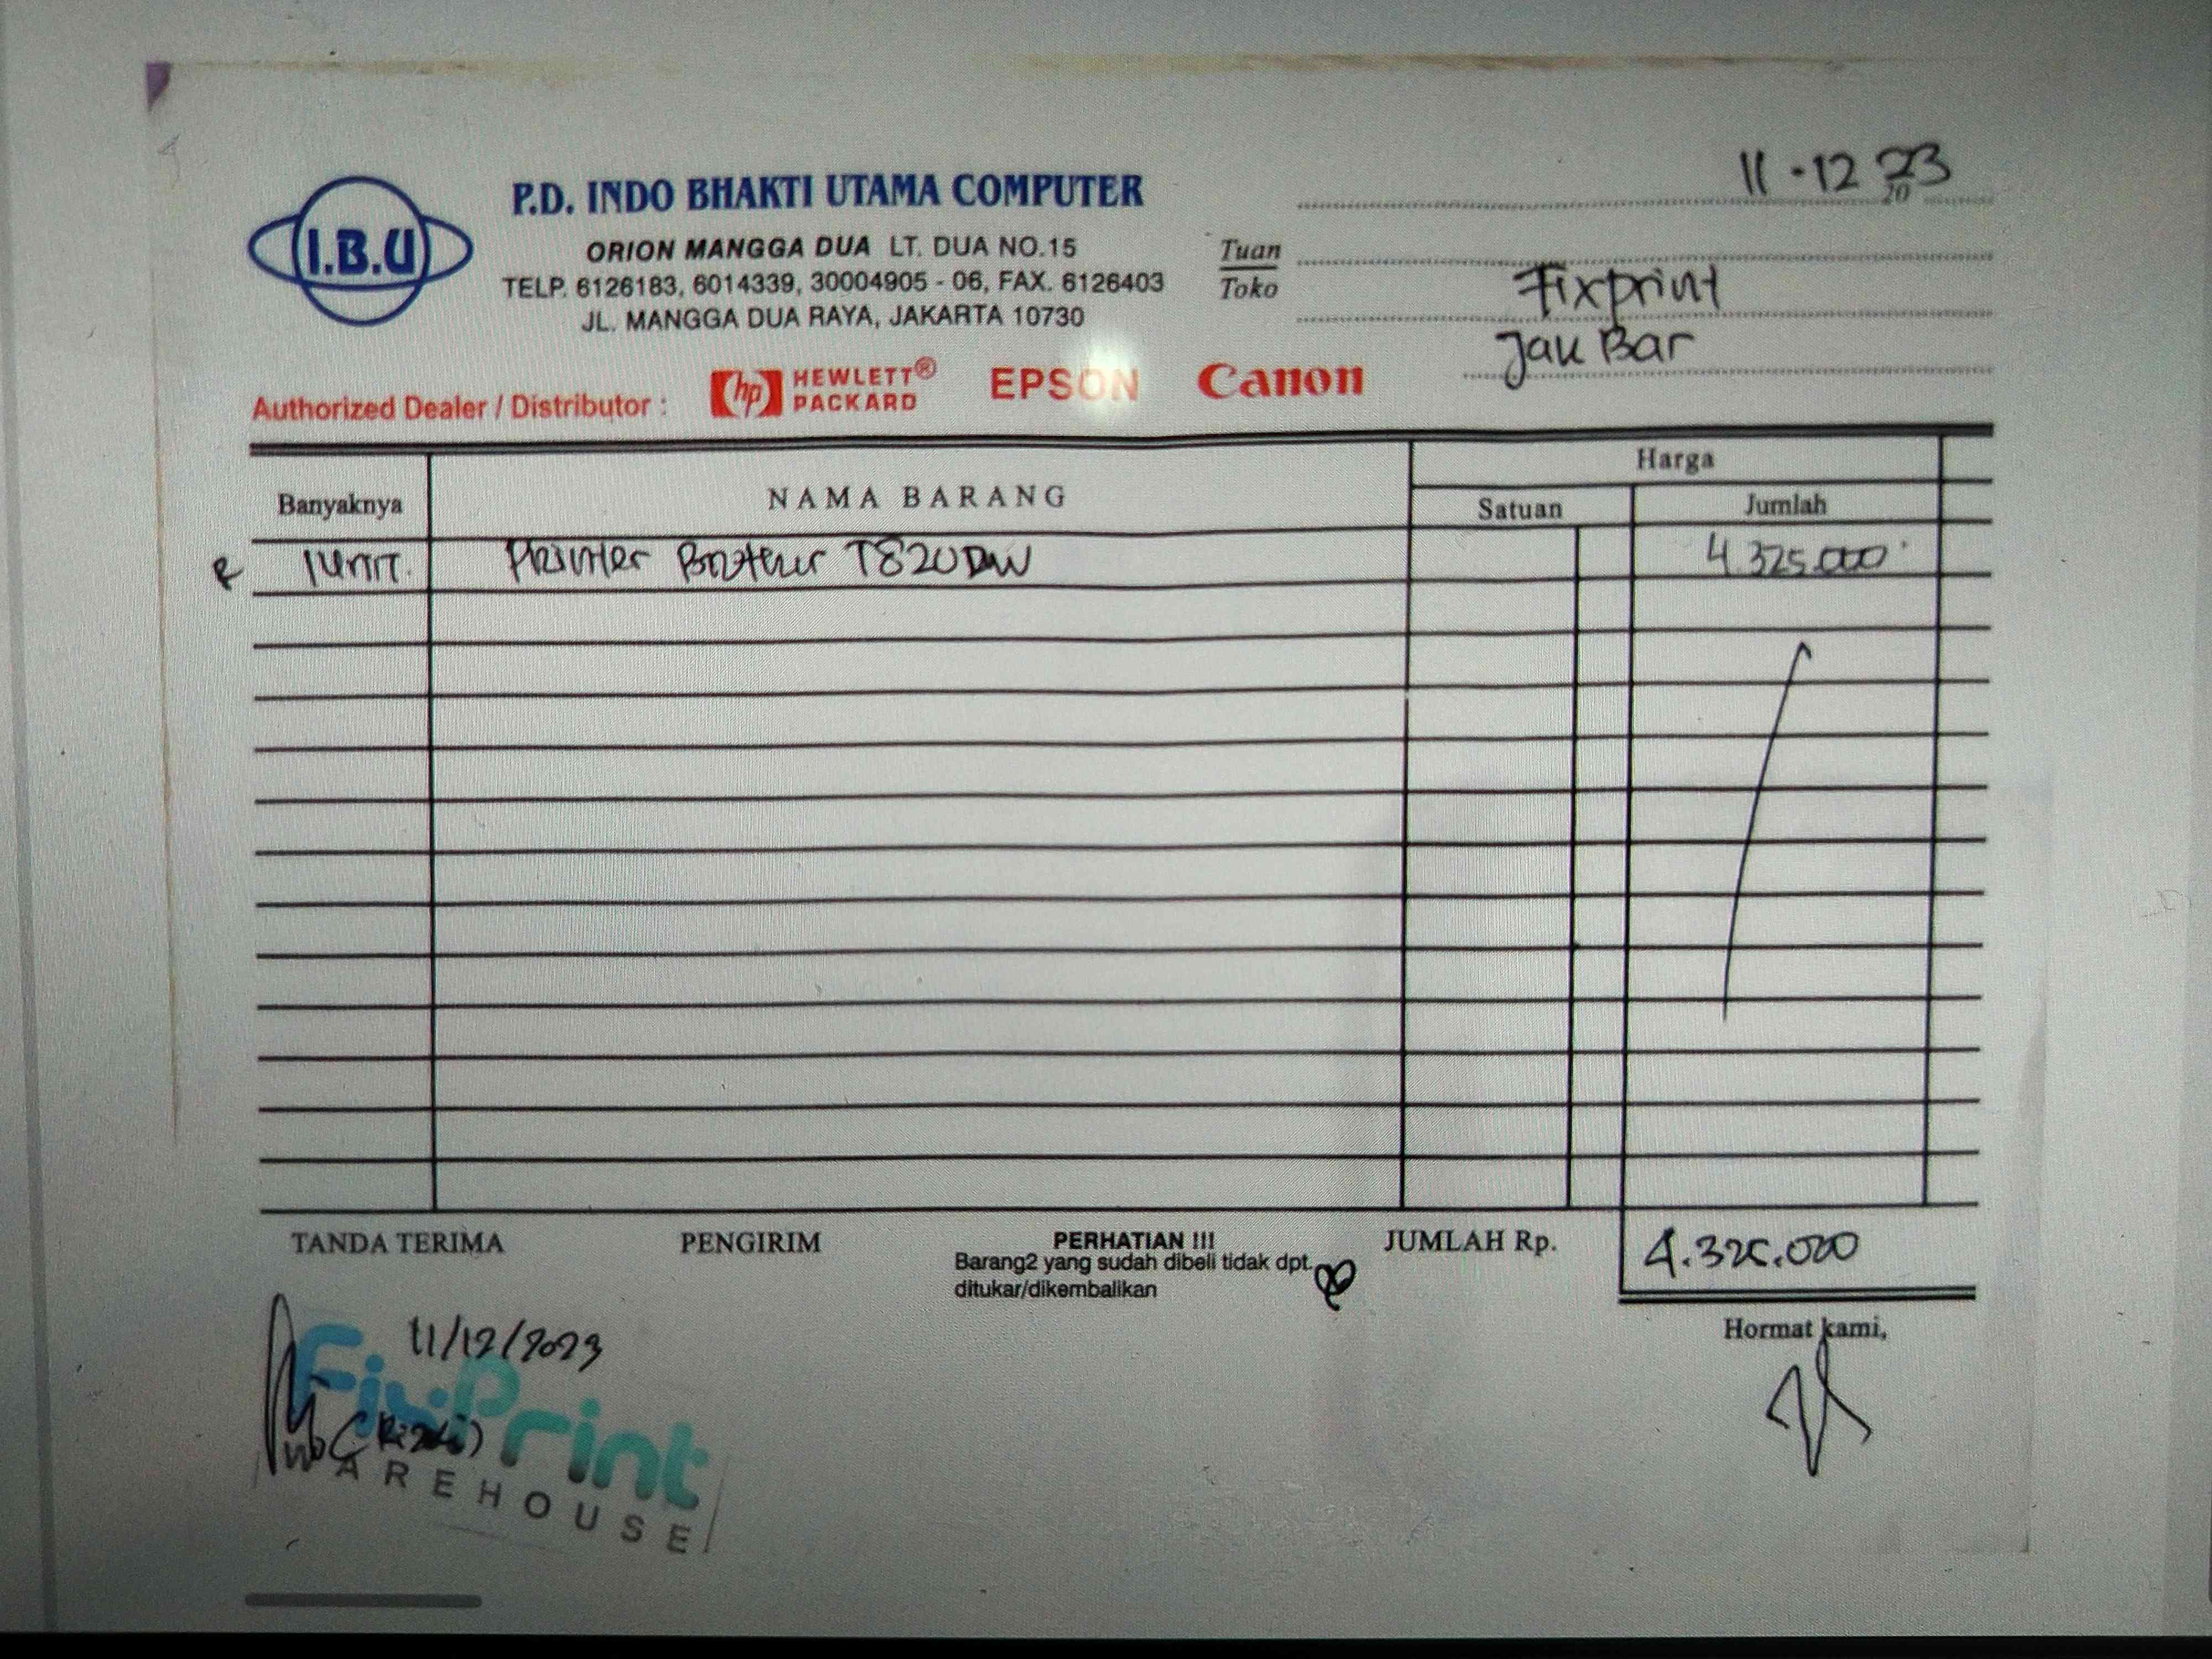 11-12 2023
P.D. INDO BHAKTI UTAMA COMPUTER
I.B.U
ORION MANGGA DUA LT. DUA NO.15
TELP. 6126183, 6014339, 30004905 - 06, FAX. 6126403
JL. MANGGA DUA RAYA, JAKARTA 10730
Tuan
Toko
Fixprint
Jak Bar
Authorized Dealer / Distributor : hp HEWLETT® PACKARD EPSON Canon
Banyaknya NAMA BARANG Harga
Satuan Jumlah
1 Unit. Printer Brother T820DW 4.325.000
TANDA TERIMA PENGIRIM PERHATIAN !!! JUMLAH Rp. 4.325.000
Barang2 yang sudah dibeli tidak dpt.
ditukar/dikembalikan
Hormat kami,
11/12/2023
FixPrint
(Rizki)
WAREHOUSE